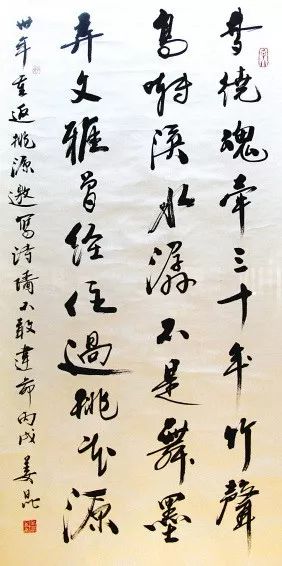 梦绕魂牵三十年竹聲
鳥溪水潺不是舞墨
弄文雅曾经住過桃花源
卅年重返桃源邀写诗墙不敢違命丙戌姜昆